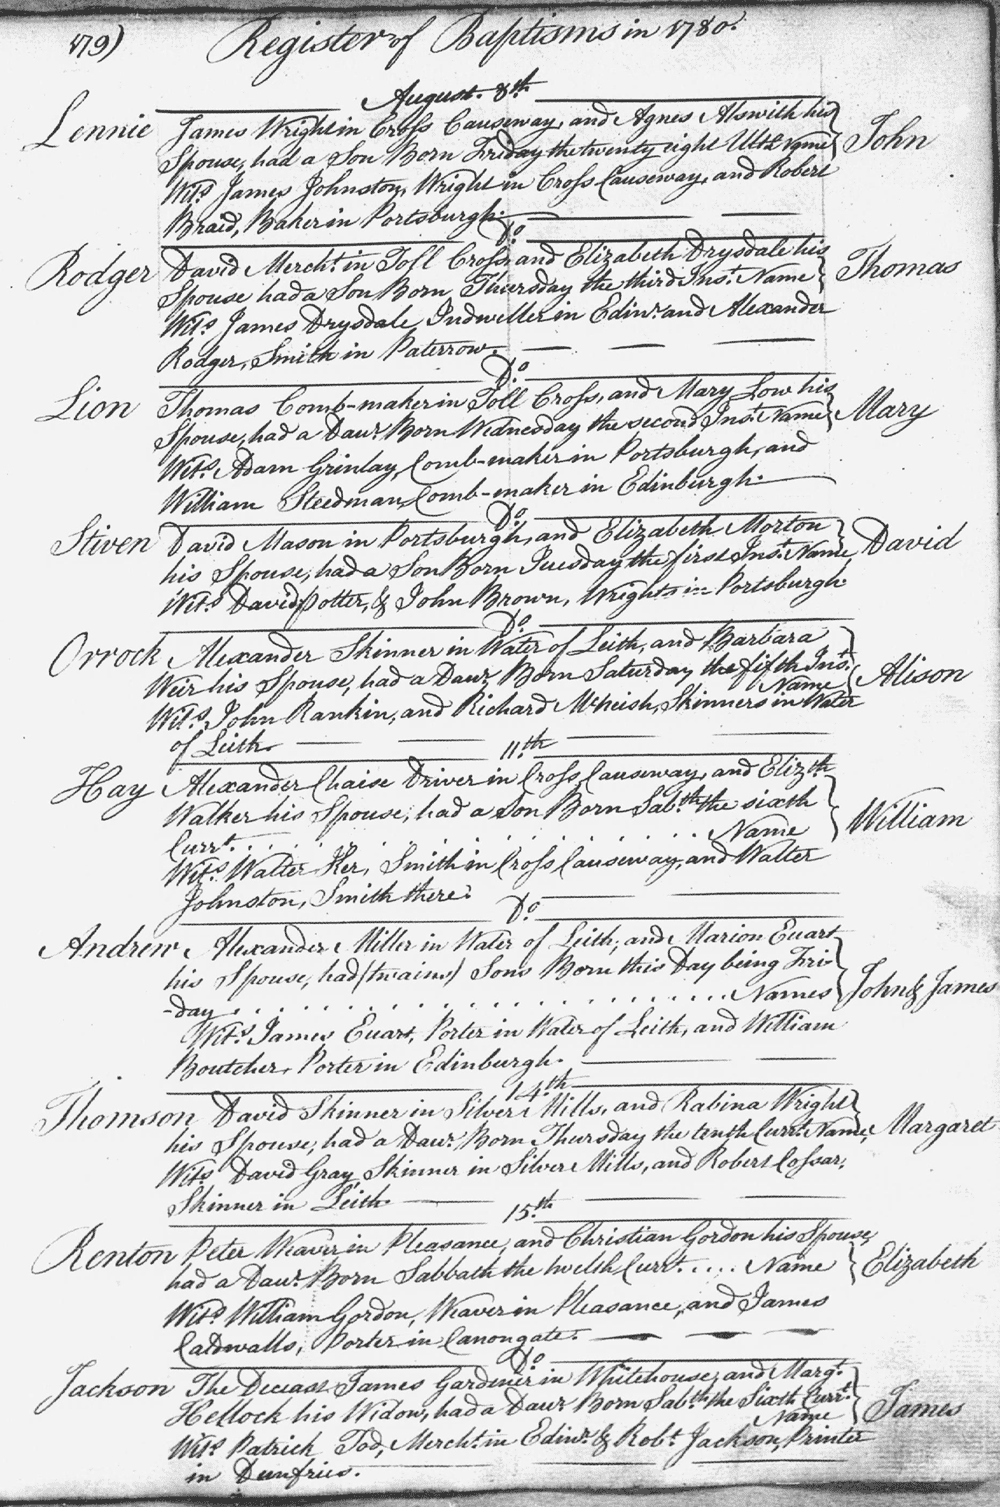 179)
Register of Baptisms in 1780.
August 8th
Lennie James Wright in Cross Causeway, and Agnes Alswith his
Spouse, had a Son Born Friday the twenty eight Ultº Name } John
Wits James Johnston, Wright in Cross Causeway, and Robert
Braid, Baker in Portsburgh.
Do
Rodger David Mercht in Toll Cross, and Elizabeth Drysdale his
Spouse had a Son Born Thursday the third Inst. Name } Thomas
Wits James Drysdale, Indweller in Edinr and Alexander
Rodger, Smith in Paterrow.
Do
Lion Thomas Comb-maker in Toll Cross, and Mary Low his
Spouse, had a Daur Born Wednesday the second Inst. Name } Mary
Wits Adam Grinlay, Comb-maker in Portsburgh, and
William Steedman, Comb-maker in Edinburgh.
Do
Stiven David Mason in Portsburgh, and Elizabeth Morton
his Spouse, had a Son Born Tuesday the first Inst. Name } David
Wits David Potter, & John Brown, Wrights in Portsburgh.
Do
Orrock Alexander Skinner in Water of Leith, and Barbara
Weir his Spouse, had a Daur Born Saturday the fifth Inst.
Name } Alison
Wits John Rankin, and Richard McHeish, Skinners in Water
of Leith.
11th
Hay Alexander Chaise Driver in Cross Causeway, and Elizth
Walker his Spouse, had a Son Born Sabth the sixth
Currt. . . . . . . . . . . Name } William
Wits Walter Ker, Smith in Cross Causeway, and Walter
Johnston, Smith there.
Do
Andrew Alexander Miller in Water of Leith, and Marion Euart
his Spouse, had (twains) Sons Born this Day being Fri-
-day. . . . . . . . . . . . Names } John & James
Wits James Euart, Porter in Water of Leith, and William
Boutcher, Porter in Edinburgh.
14th
Thomson David Skinner in Silver Mills, and Rabina Wright
his Spouse, had a Daur Born Thursday the tenth Currt. Name } Margaret
Wits David Gray, Skinner in Silver Mills, and Robert Cossar,
Skinner in Leith
15th
Renton Peter Weaver in Pleasance, and Christian Gordon his Spouse,
had a Daur Born Sabbath the twelth Currt. . . . . Name } Elizabeth
Wits William Gordon, Weaver in Pleasance, and James
Caldwalls, Porter in Canongate.
Do
Jackson The Deceast James Gardener in Whitehouse, and Margt
Hellock his Widow, had a Daur Born Sabth the Sixth Currt.
Name } James
Wits Patrick Tod, Mercht in Edinr & Robt Jackson, Printer
in Dumfries.